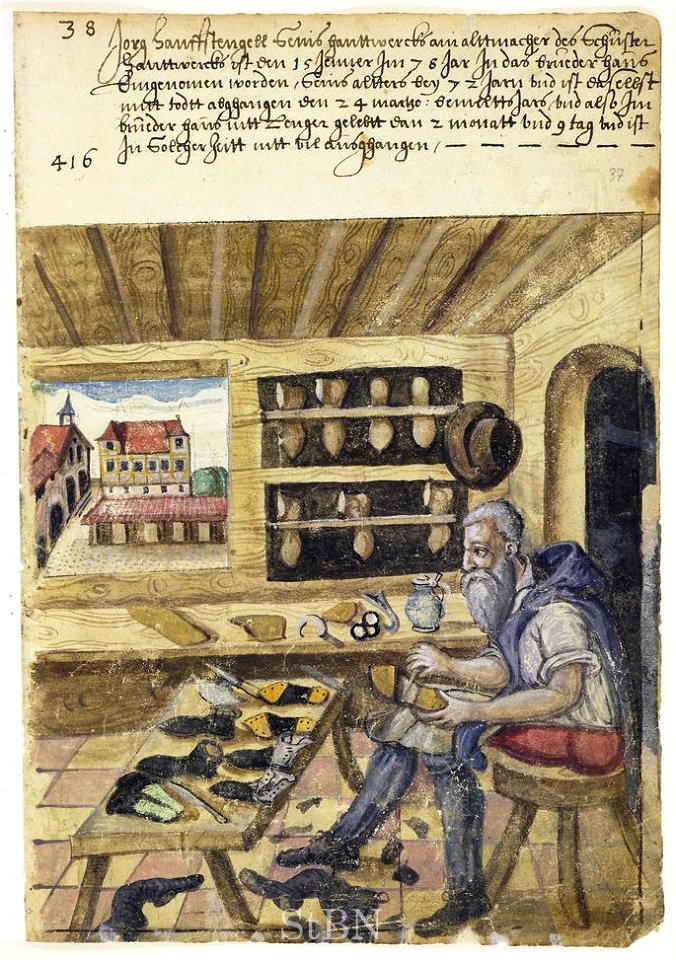 38
Jorg Hanffstengell Seins hanttwercks ain alttmacher des Schuster
Hanttwercks ist den 15 Jenner Im 78 Jar In das brueder haus
Eingenomen worden, Seins altters bey 72 Jarn und ist daselbst
mitt todtt abghangen den 24 martzo: bemeltts Jars, und also Im
brueder haus nitt Lenger gelebtt dan 2 monatt und 9 tag und ist
In Solcher Zeitt nitt vil ausghangen,
416
37
StBN